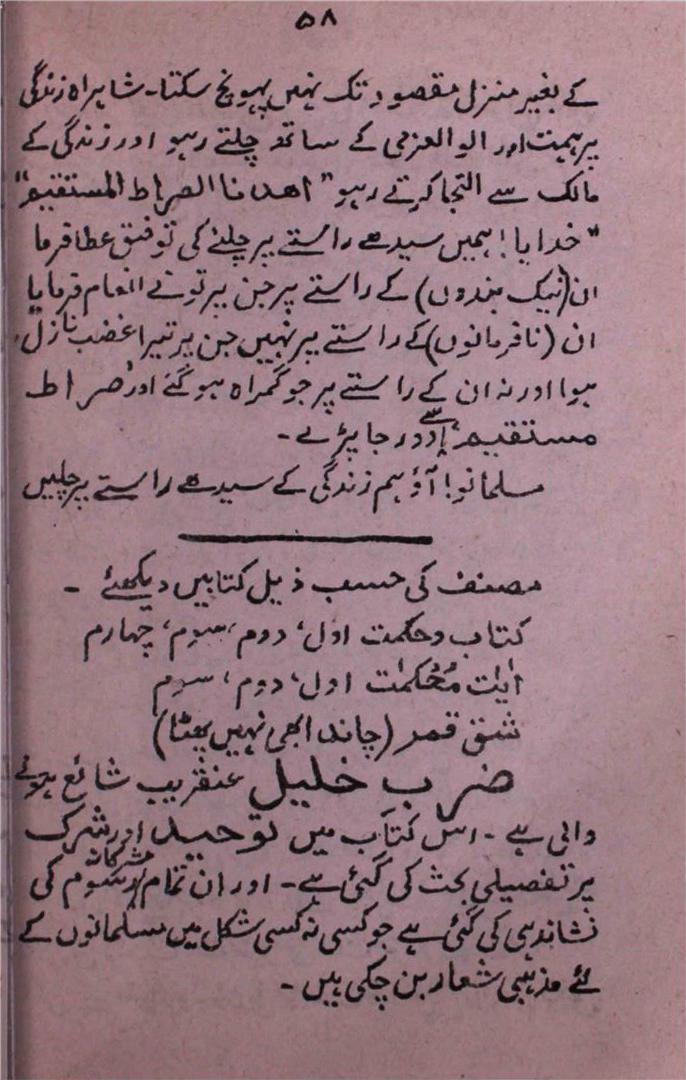 ۵۸
کے بغیر منزل مقصود تک نہیں پہونچ سکتا۔ شاہراہ زندگی
پر ہمت اور الوالعزمی کے ساتھ چلتے رہو اور زندگی کے
مالک سے التجا کرتے رہو " اھدنا الصراط المستقیم "
" خدایا! ہمیں سیدھے راستے پر چلنے کی توفیق عطا فرما
ان (نیک بندوں) کے راستے پر جن پر تونے انعام فرمایا
ان (نافرمانوں) کے راستے پر نہیں جن پر تیرا غضب نازل
ہوا اور نہ ان کے راستے پر جو گمراہ ہو گئے اور صراط
مستقیم سے دور جا پڑے ۔
مسلمانو! آؤ ہم زندگی کے سیدھے راستے پر چلیں
مصنف کی حسب ذیل کتابیں دیکھئے ۔
کتاب و حکمت اول، دوم، سوم، چہارم
اٰیٰت مُحْکمٰت اول، دوم، سوم
شق قمر (چاند ابھی نہیں پھٹا)
ضرب خلیل عنقریب شائع ہونے
والی ہے ۔ اس کتاب میں توحید اور شرک
پر تفصیلی بحث کی گئی ہے ۔ اور ان تمام مشرکانہ رسوم کی
نشاندہی کی گئی ہے جو کسی نہ کسی شکل میں مسلمانوں کے
لئے مذہبی شعار بن چکی ہیں ۔